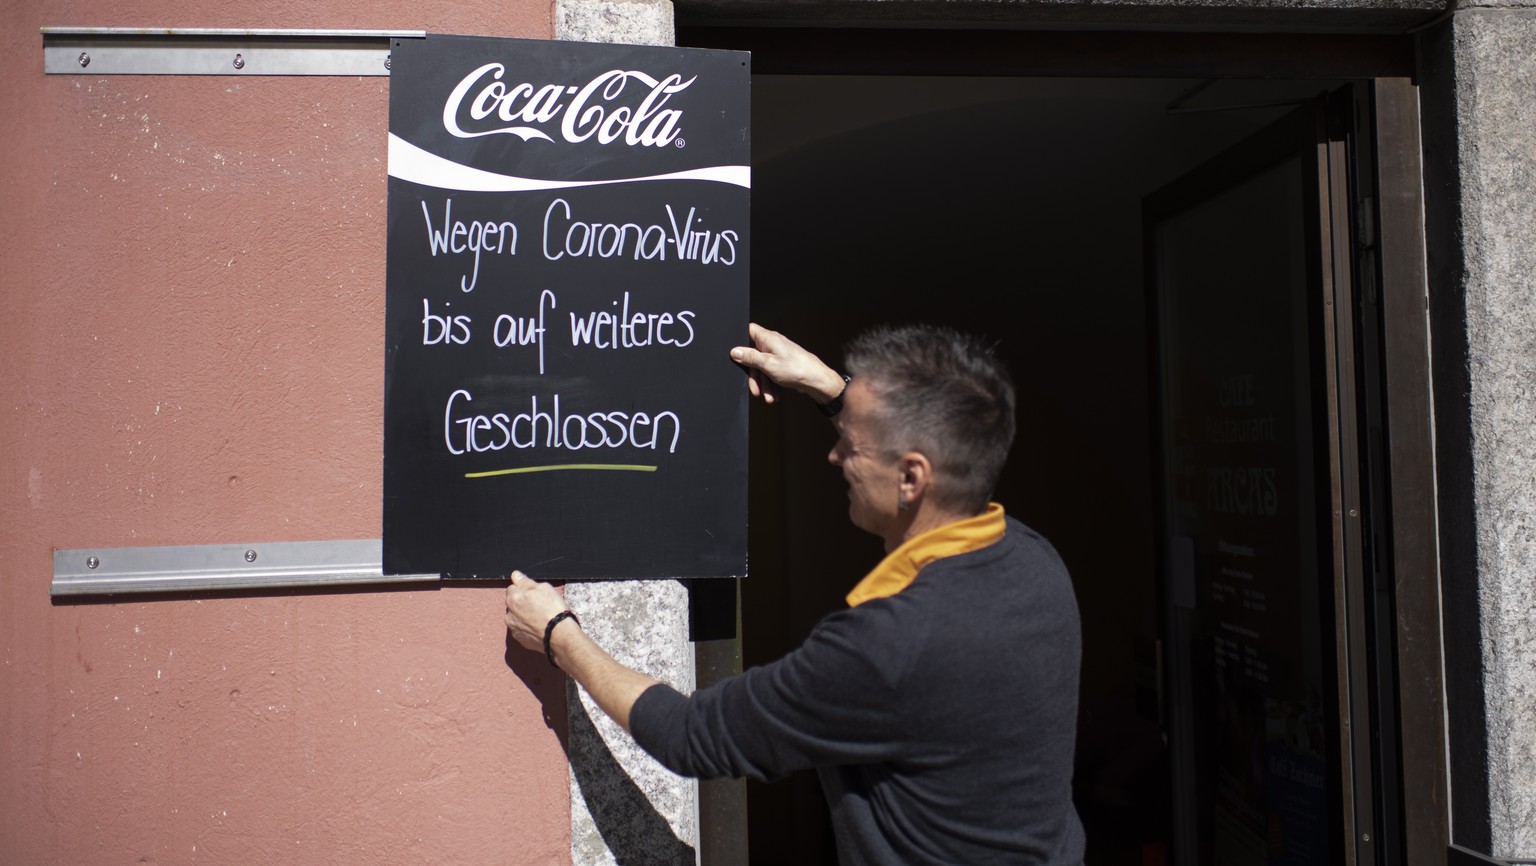 Coca-Cola®
Wegen Corona-Virus
bis auf weiteres
Geschlossen
Restaurant
ARCAS